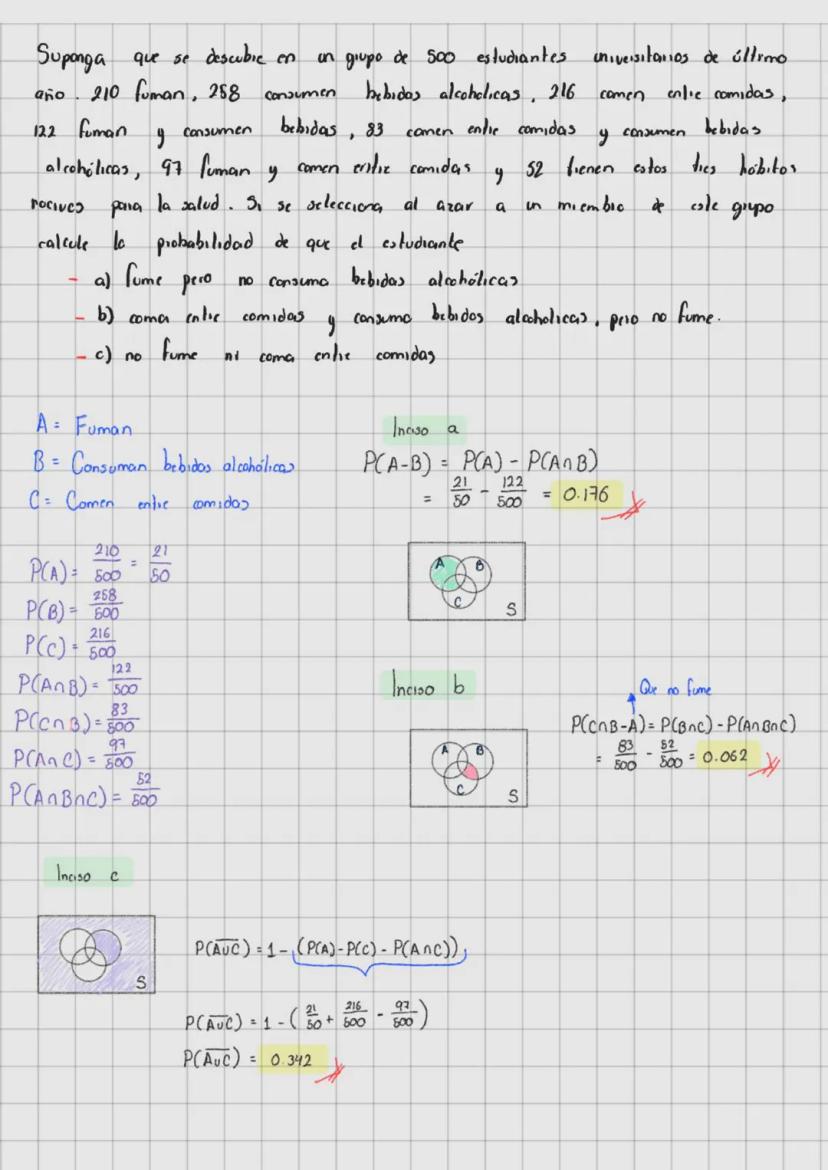 Suponga que se descubre en un grupo de 500 estudiantes universitarios de último
año. 210 fuman, 258 consumen bebidas alcoholicas, 216 comen entre comidas,
122 fuman y consumen bebidas, 83 comen entre comidas y consumen bebidas
alcohólicas, 97 fuman y comen entre comidas y 52 tienen estos tres hábitos
nocivos para la salud. Si se selecciona al azar a un miembro de este grupo
calcule la probabilidad de que el estudiante
- a) fume pero no consuma bebidas alcohólicas
- b) coma entre comidas y consuma bebidas alcoholicas, pero no fume.
- c) no fume ni coma entre comidas
A = Fuman
B = Consuman bebidas alcohólicas
C = Comen entre comidas
P(A) = 210/500 = 21/50
P(B) = 258/500
P(C) = 216/500
P(A∩B) = 122/500
P(C∩B) = 83/500
P(A∩C) = 97/500
P(A∩B∩C) = 52/500
Inciso a
P(A-B) = P(A) - P(A∩B)
= 21/50 - 122/500 = 0.176
A B
C
S
Inciso b
A B
C
S
Que no fume
P(C∩B-A) = P(B∩C) - P(A∩B∩C)
= 83/500 - 52/500 = 0.062
Inciso c
S
P(A̅∪̅C̅) = 1 - (P(A) - P(C) - P(A∩C))
P(A̅∪̅C̅) = 1 - (21/50 + 216/500 - 97/500)
P(A̅∪̅C̅) = 0.342